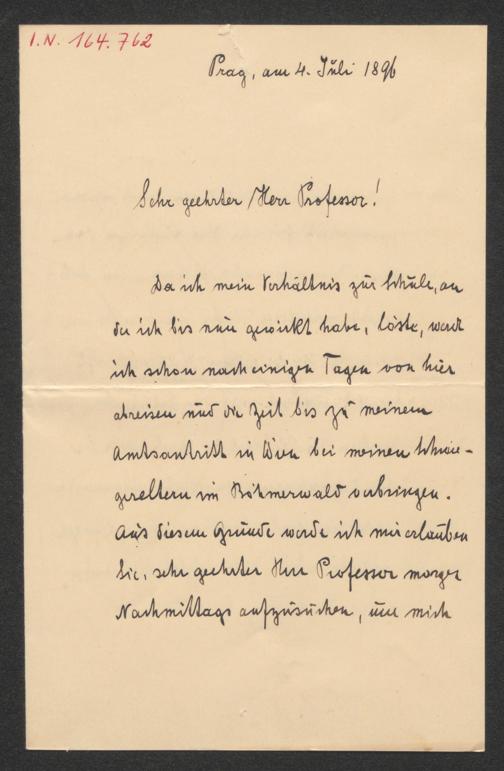 I.N. 164.762
Prag, am 4. Juli 1896
Sehr geehrter Herr Professor!
Da ich mein Verhältnis zur Schule, an
der ich bis nun gewirkt habe, löste, werde
ich schon nach einigen Tagen von hier
abreisen und die Zeit bis zu meinem
Amtsantritt in Wien bei meinen Schwie-
gereltern im Böhmerwald verbringen.
Aus diesem Grunde werde ich mir erlauben
Sie, sehr geehrter Herr Professor morgen
Nachmittags aufzusuchen, um mich